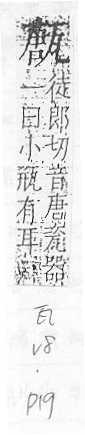 徒郎切音唐瓷器
一曰小瓶有耳
瓦
v8
.
p19